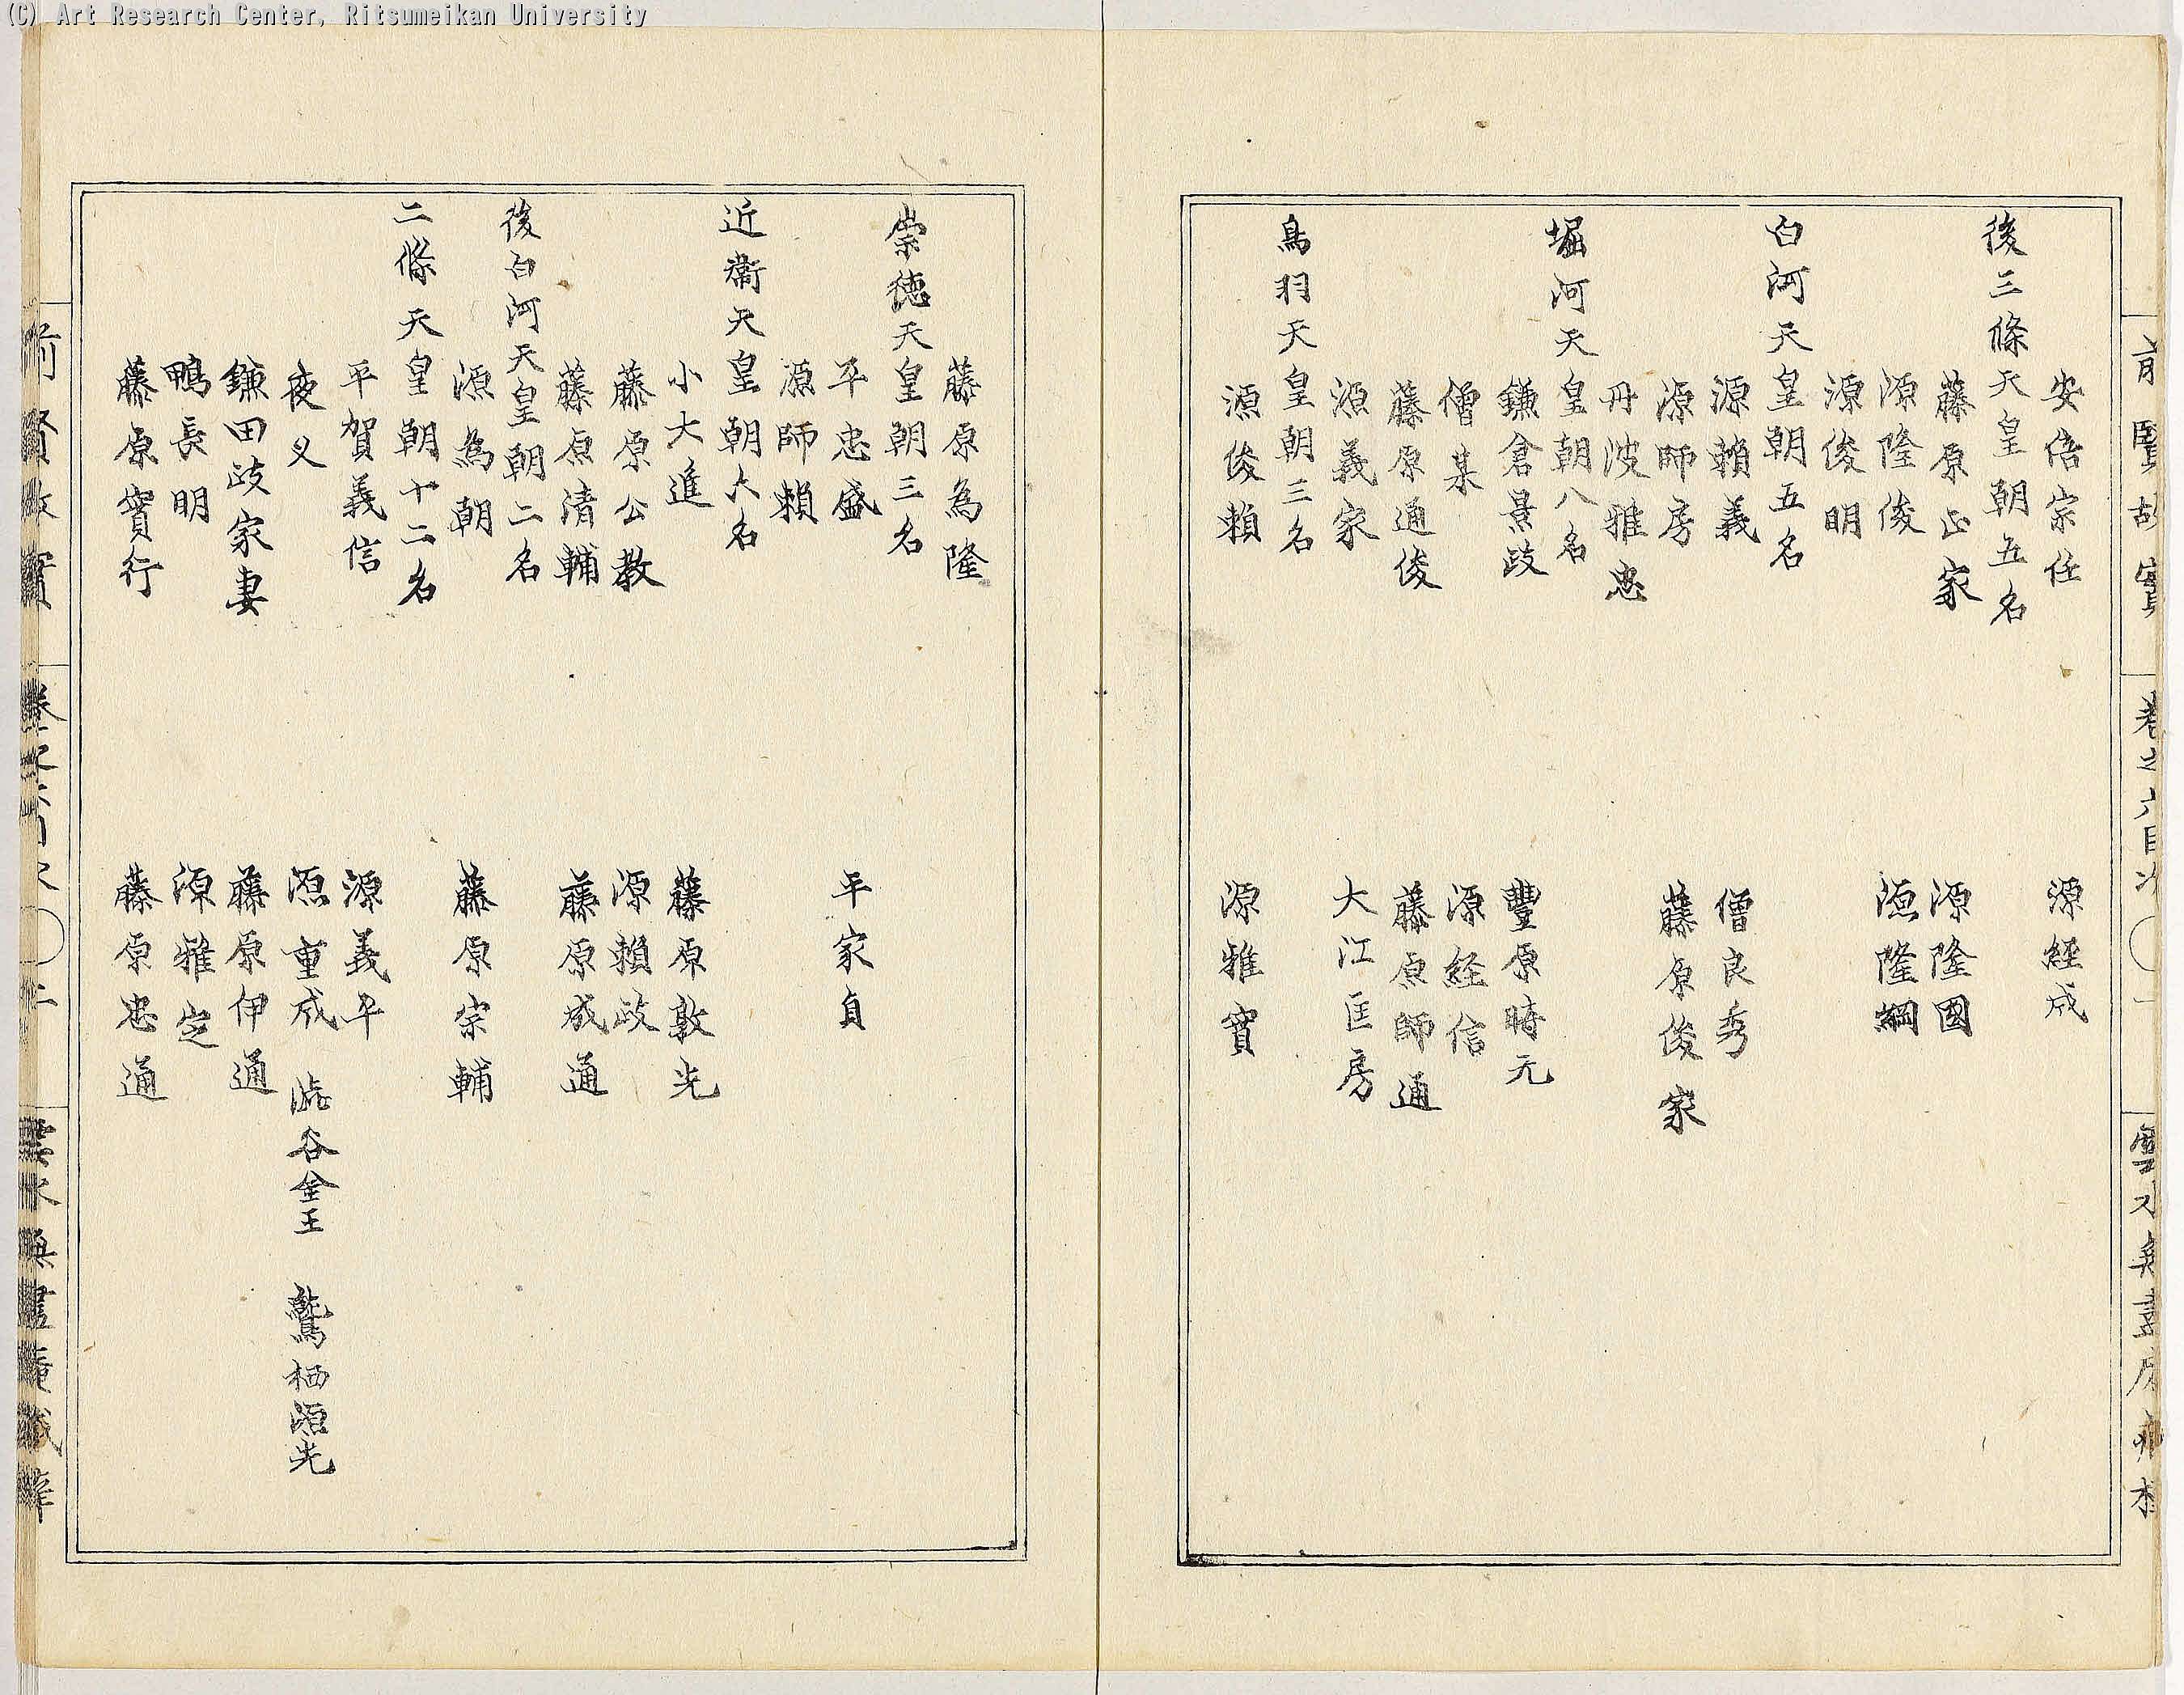 (C) Art Research Center, Ritsumeikan University
前賢故實 卷之六目次 一
安倍宗任 源經成
後三條天皇朝五名
藤原正家 源隆國
源隆俊 源隆綱
源俊明
白河天皇朝五名
源賴義 僧良秀
源師房 藤原俊家
丹波雅忠
堀河天皇朝八名
鎌倉景政 豐原時元
僧某 源経信
藤原通俊 藤原師通
源義家 大江匡房
鳥羽天皇朝三名
源俊賴 源雅實
藤原為隆
崇徳天皇朝三名
平忠盛 平家貞
源師賴
近衞天皇朝六名
小大進 藤原敦光
藤原公教 源賴政
藤原清輔 藤原成通
後白河天皇朝二名
源為朝 藤原宗輔
二條天皇朝十二名
平賀義信 源義平
夜叉 源重成 澁谷金王 鷲栖源光
鎌田政家妻 藤原伊通
鴨長明 源雅定
藤原實行 藤原忠通
前賢故實 卷之六目次 二